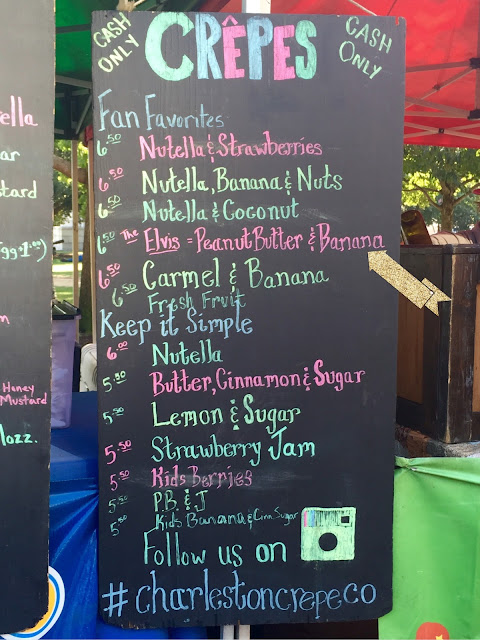 CASH ONLY
CRÊPES
CASH ONLY
Fan Favorites
6.50 Nutella & Strawberries
6.50 Nutella, Banana & Nuts
6.50 Nutella & Coconut
6.50 The Elvis = Peanut Butter & Banana
6.50 Carmel & Banana
6.50 Fresh Fruit
Keep it Simple
6.00 Nutella
5.50 Butter, Cinnamon & Sugar
5.50 Lemon & Sugar
5.50 Strawberry Jam
5.50 Kids Berries
5.50 P.B. & J
5.50 Kids Banana & Cinn. Sugar
Follow us on
#charlestoncrepeco
ella
ar
stard
gg+1.00)
m
Honey
Mustard
Mozz.